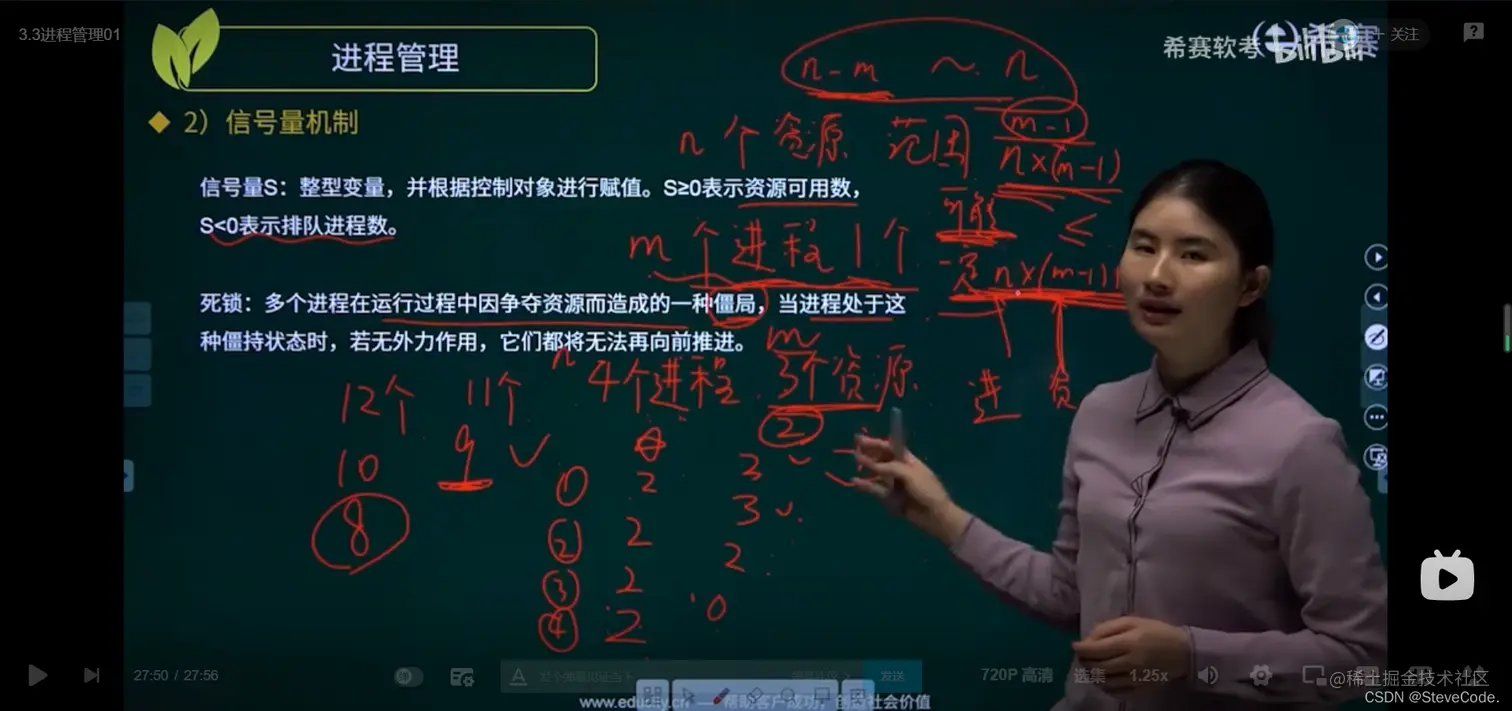 3.3进程管理01
进程管理
希赛软考
bilibili
希赛
+ 关注
n-m ~ n
2）信号量机制
n个资源 范围
m-1
n×(m-1)
信号量S：整型变量，并根据控制对象进行赋值。S≥0表示资源可用数，
S<0表示排队进程数。
可能
≤
m个进程1个
一定 n×(m-1)
死锁：多个进程在运行过程中因争夺资源而造成的一种僵局，当进程处于这
种僵持状态时，若无外力作用，它们都将无法再向前推进。
m
n 4个进程 3个资源
进 资
12个 11个
②
10 9
① 2 3
8
② 2 3
③ 2 2
④ 2 0
27:50 / 27:56
发个弹幕见证当下
发送
720P 高清
选集
1.25x
@稀土掘金技术社区
CSDN @SteveCode.
www.educity.cn — 帮助客户成功，创造社会价值